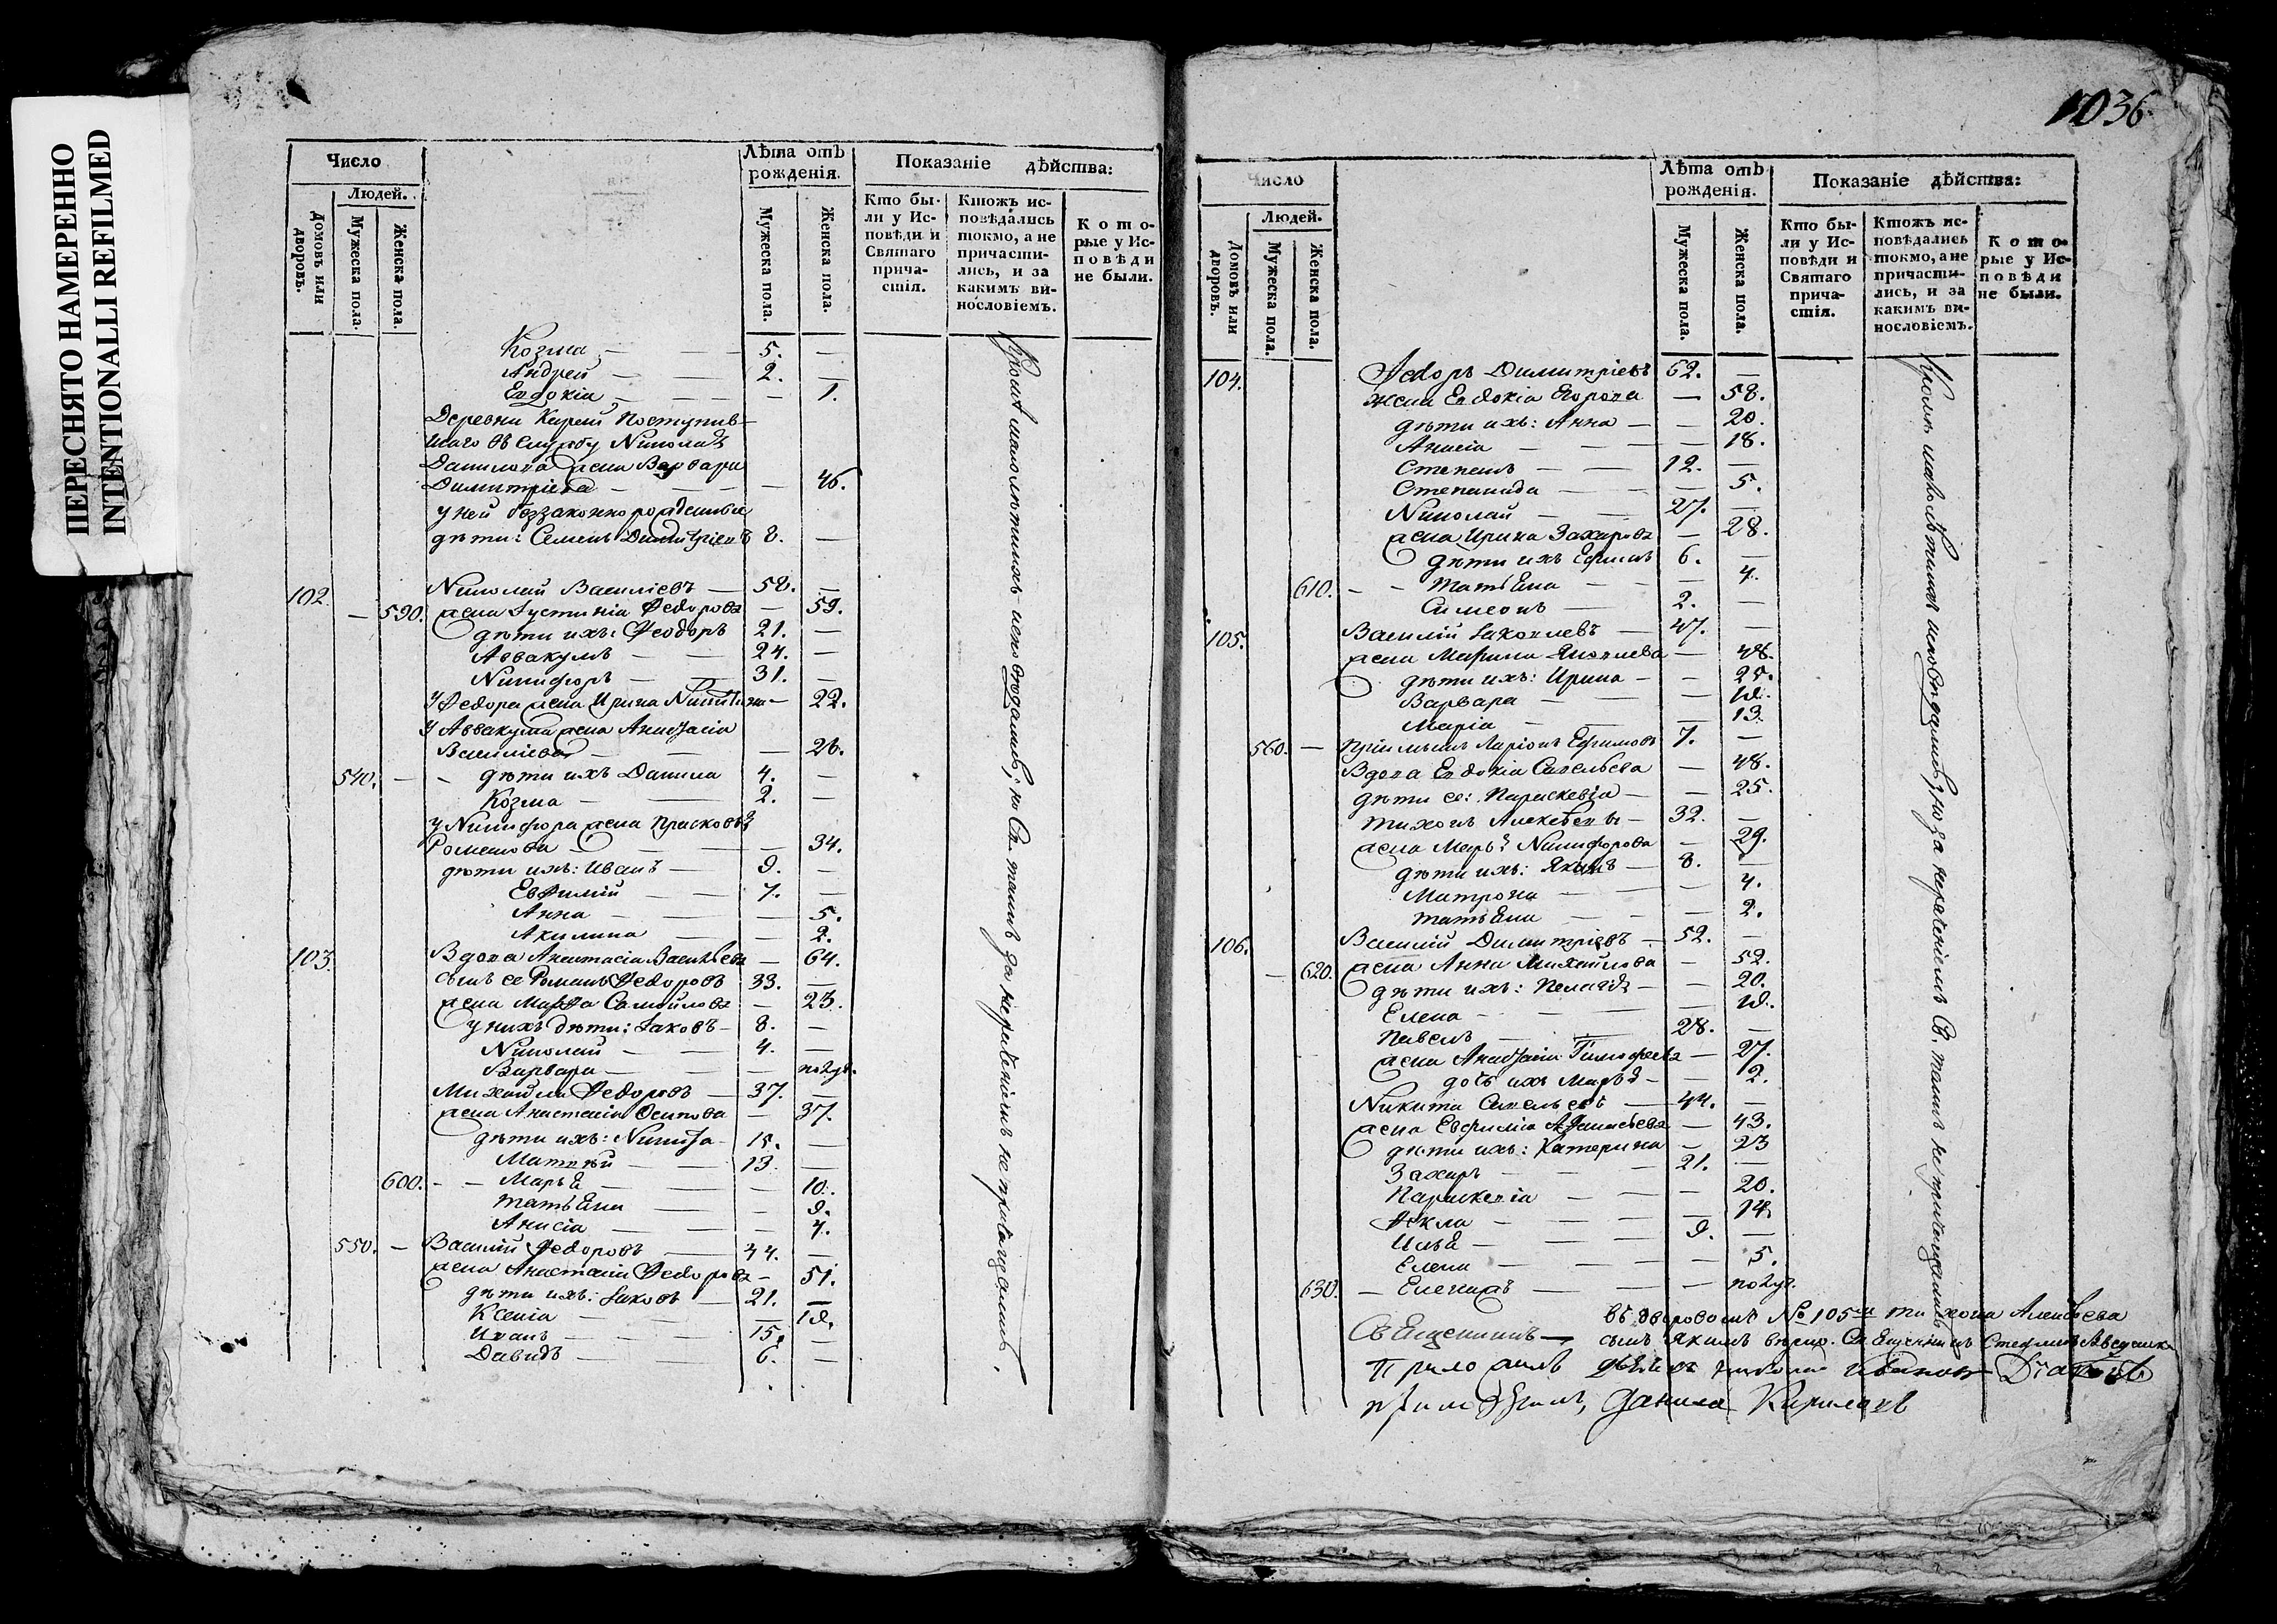 ПЕРЕСНЯТО НАМЕРЕННО
INTENTIONALLI REFILMED
Число
Людей.
Домовъ или дворовъ.
Мужеска пола.
Женска пола.
Лѣта отъ рожденія.
Мужеска пола.
Женска пола.
Показаніе дѣйства:
Кто были у Исповѣди и Святаго причастія.
Ктожъ исповѣдались токмо, а не причастились, и за какимъ винословіемъ.
Которые у Исповѣди не были.
Козма — — 5. —
Андрей — — 2. —
Евдокіа — — — 1.
Деревни Поступив-
шаго въ службу Николая
Данилова жена Варвара
Димитріева — — — 46.
у ней беззаконнорожденные
дѣти: Семенъ Димитріевъ 8. —
102. Николай Василіевъ — 58. —
— 590. жена Іустиніа Федорова — 59.
дѣти ихъ: Феодоръ 21. —
Аввакумъ — — 24. —
Никифоръ — — 31. —
У Федора жена Ирина Никитина — 22.
У Аввакума жена Анастасіа
Василіева — — — 26.
540. — — дѣти ихъ Данила 4. —
Козма — — 2. —
у Никифора жена Прасковья
Романова — — — 34.
дѣти ихъ: Иванъ — 9. —
Евфимій — — 7. —
Анна — — — 5.
Акилина — — — 2.
103. Вдова Анастасіа Васильева — 64.
сынъ ее Романъ Федоровъ 33. —
жена Марфа Самойлова — 23.
у нихъ дѣти: Іаковъ — 8. —
Николай — — 4. —
Варвара — — — полуг.
Михайла Федоровъ — 37. —
жена Анастасіа Осипова — 37.
дѣти ихъ: Никита — 15. —
Матвѣй — — 13. —
600. — — Марья — — — 10.
Татьяна — — — 9.
Анисіа — — — 4.
550. — Василій Федоровъ — 44. —
жена Анастасіа Федорова — 51.
дѣти ихъ: Іаковъ — 21. —
Ксеніа — — — 18.
Иванъ — — 15. —
Давидъ — — 6. —
Кромѣ малолѣтнихъ исповѣдались, но Св. таинъ за нераченіемъ не пріобщались.
1036
Число
Людей.
Домовъ или дворовъ.
Мужеска пола.
Женска пола.
Лѣта отъ рожденія.
Мужеска пола.
Женска пола.
Показаніе дѣйства:
Кто были у Исповѣди и Святаго причастія.
Ктожъ исповѣдались токмо, а не причастились, и за какимъ винословіемъ.
Которые у Исповѣди не были.
104. Федоръ Димитріевъ 62. —
жена Евдокіа Егорова — 58.
дѣти ихъ: Анна — — 20.
Анисіа — — — 18.
Степанъ — — 12. —
Степанида — — — 5.
Николай — — 27. —
жена Ирина Захарова — 28.
дѣти ихъ Ефимъ 6. —
610. — — Татьяна — — — 4.
Симеонъ — 2. —
105. Василій Іаковлевъ — 47. —
жена Марина Яковлева — 48.
дѣти ихъ: Ирина — — 25.
Варвара — — 18.
Маріа — — — 13.
560. — пріимышъ Ларіонъ Ефимовъ 7. —
Вдова Евдокіа Савельева — 48.
дѣти ее: Параскевіа — — 25.
Тихонъ — 32. —
жена Марья Никифорова — 29.
дѣти ихъ: Якимъ — 8. —
Матрона — — 4.
Татьяна — — — 2.
106. Василій Димитріевъ — 52. —
— 620. жена Анна Михайлова — 52.
дѣти ихъ: Пелагія — — 20.
Елена — — — 18.
Павелъ — — 28. —
жена Анастасіа Тимофеева — 27.
дочь ихъ Марья — — 2.
Никита Савельевъ — 44. —
жена Евфиміа Афанасьева — 43.
дѣти ихъ: Катерина — 23
Захаръ — — 21. —
Параскевіа — — — 20.
Фекла — — — 14.
Илья — — 9. —
Елена — — — 5.
630. — — — полуг.
Кромѣ малолѣтнихъ исповѣдались, но за нераченіемъ Св. таинъ не причащались
въ дворовомъ № 105м Тихона Алексѣева
сынъ Якимъ вѣрно. Священникъ Стефанъ
Священникъ —
Николай Ивановъ
Данила Кириловъ